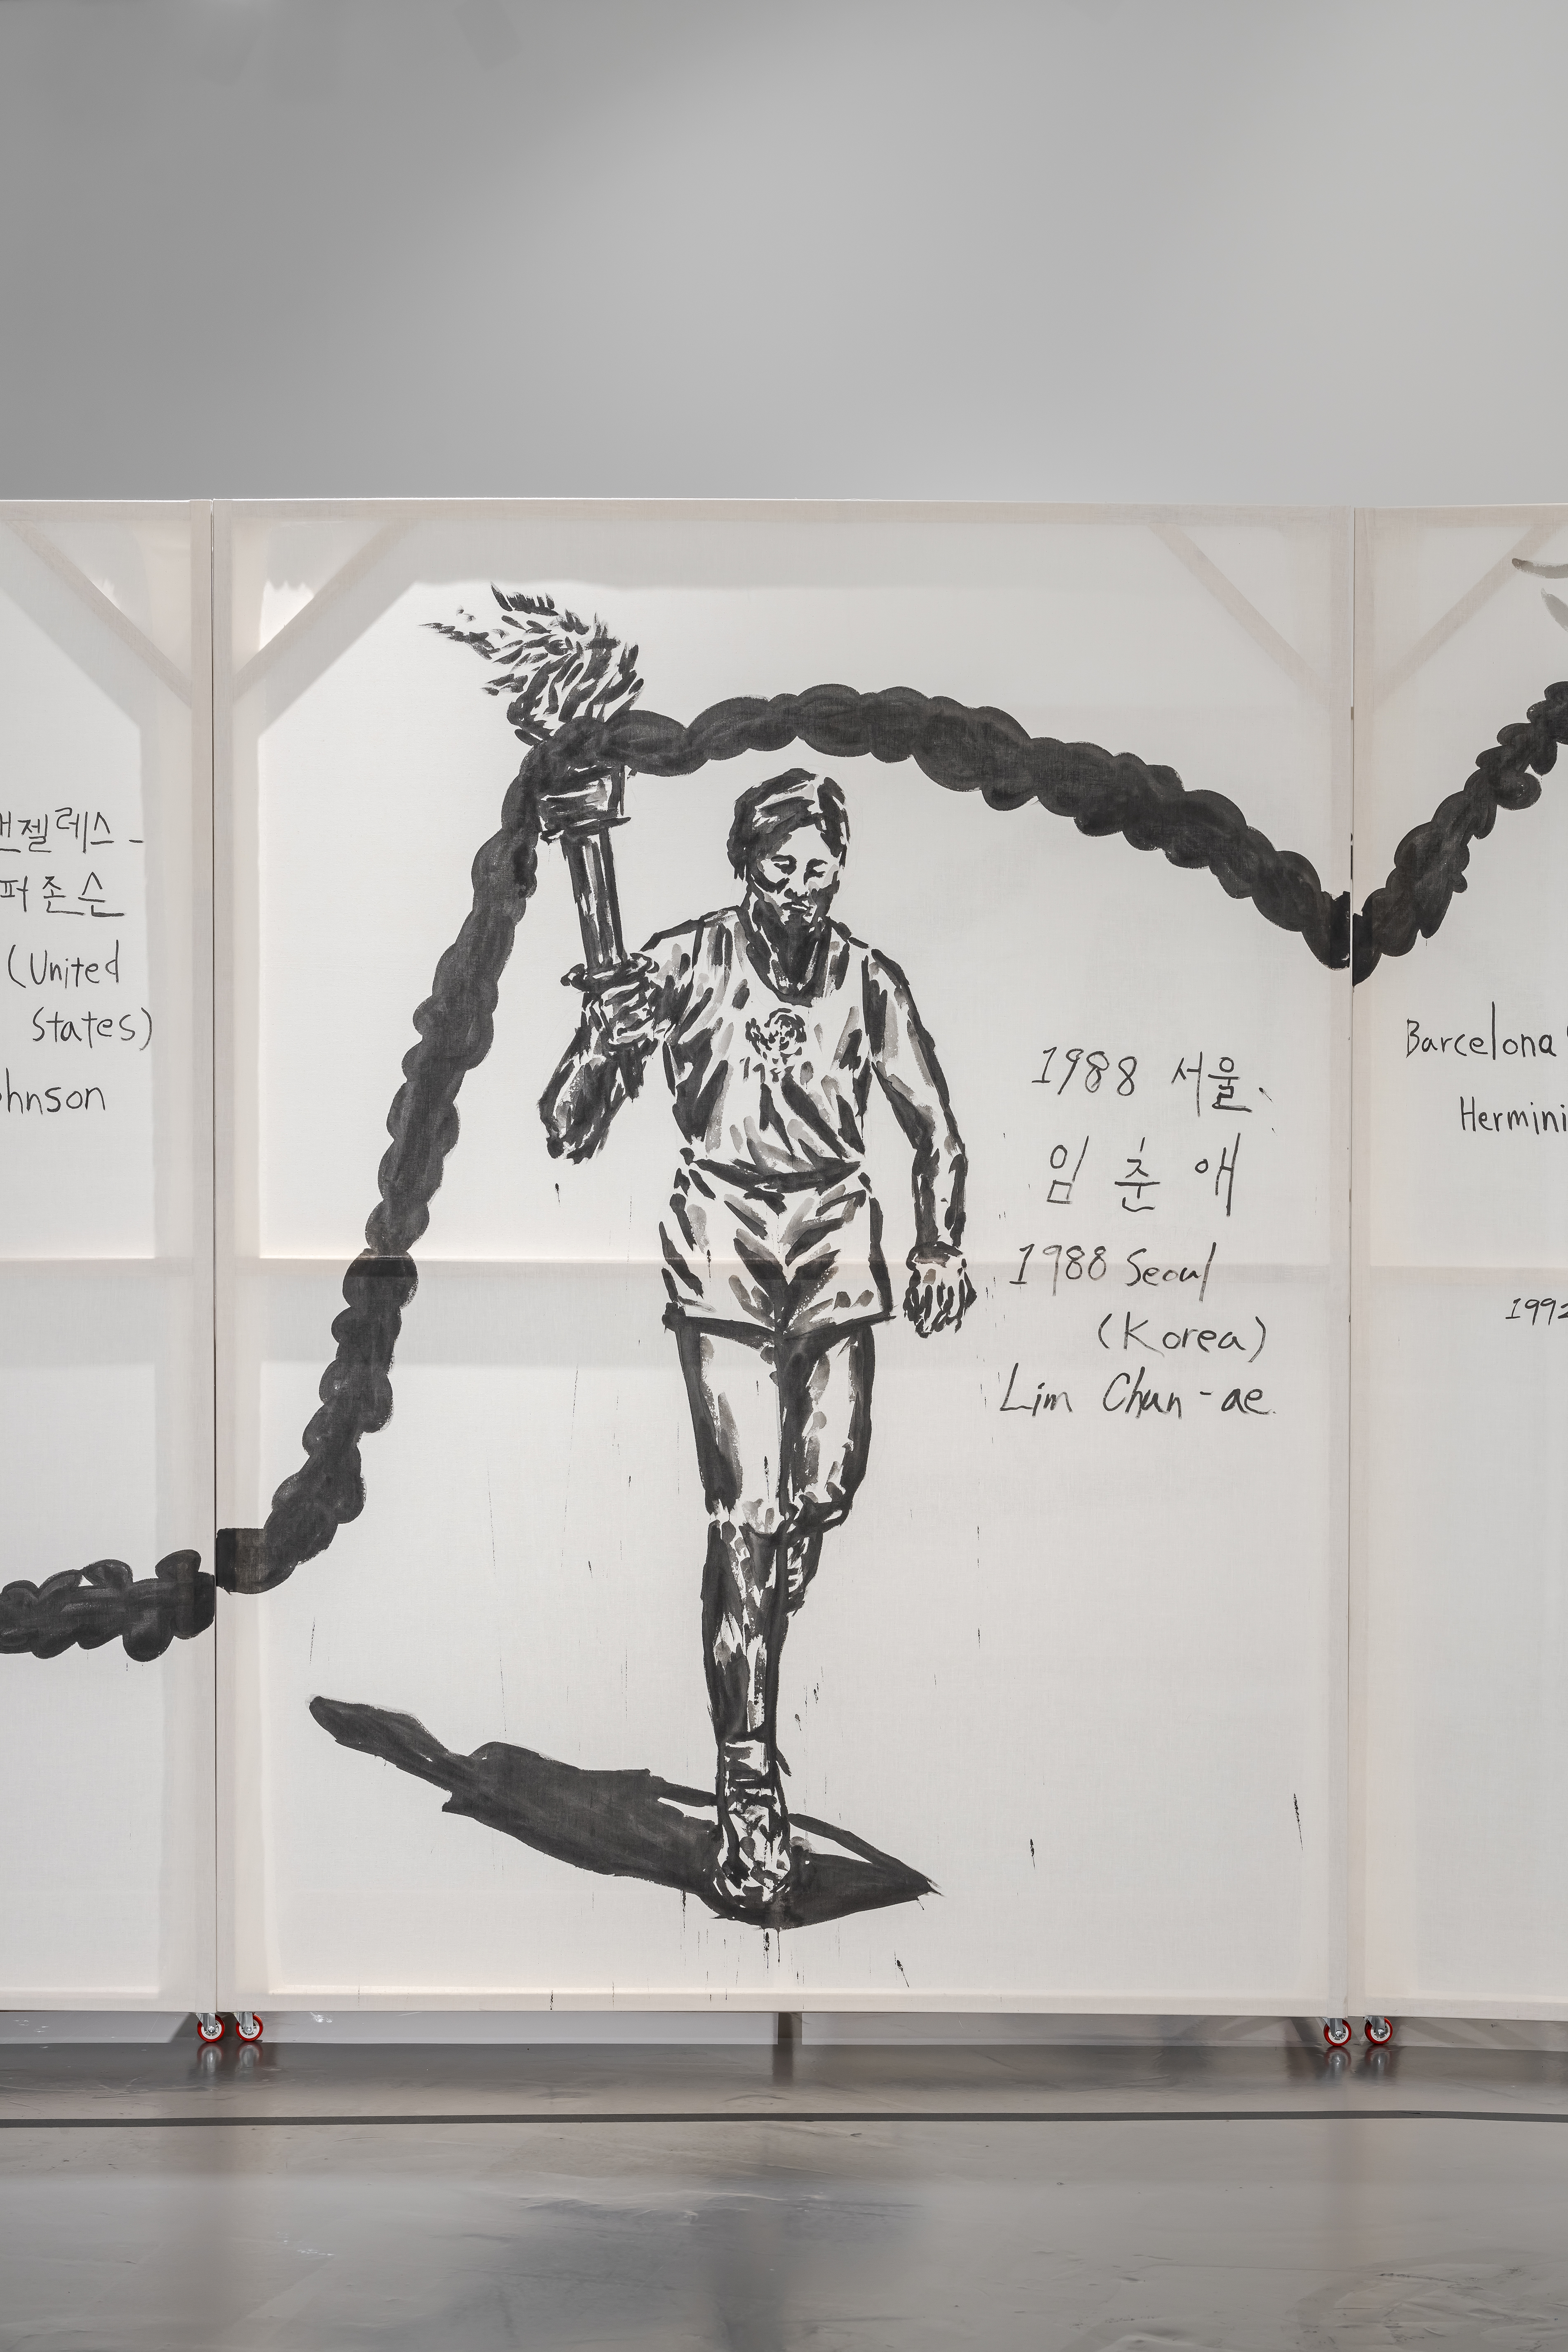 젤레스-
퍼 존슨
(United
States)
ohnson
1988 서울.
임 춘 애
1988 Seoul
(Korea)
Lim Chun-ae
Barcelona
Hermini
1992